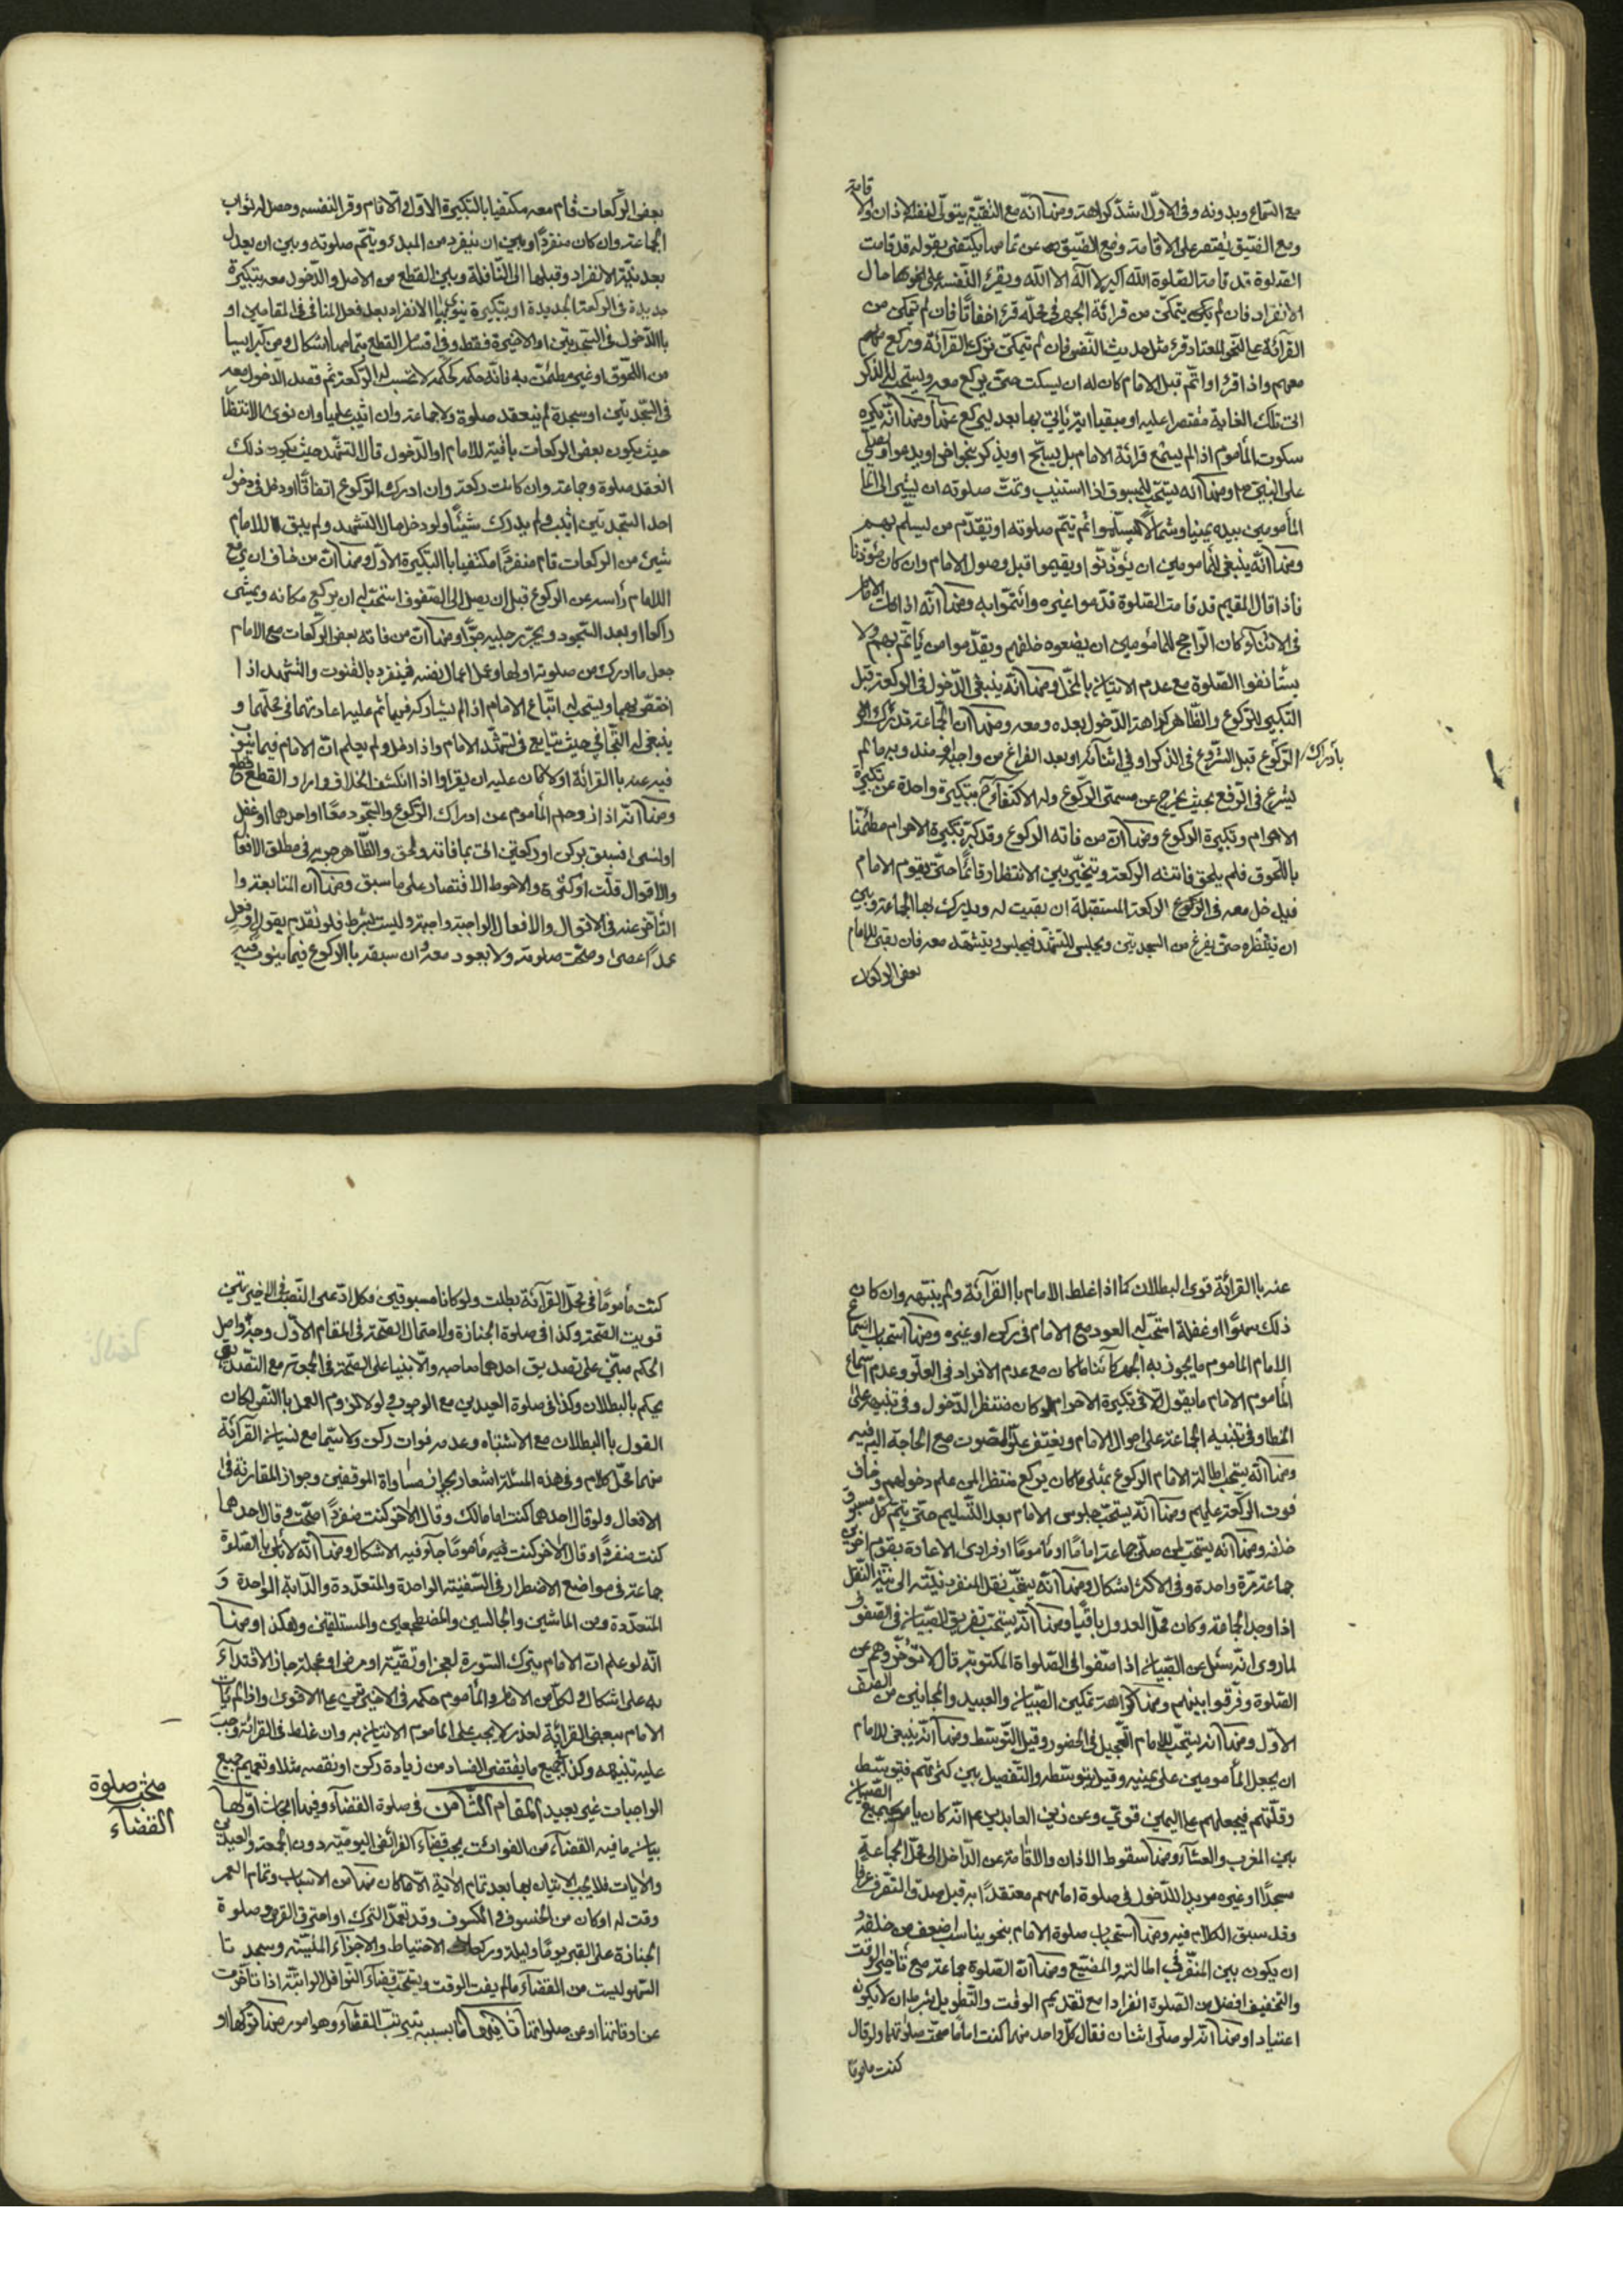 قامة
مع السماع وبدونه وفي الاول اشد كراهة ومنها انه مع التقية يتولى لنفسه الاذان والا
ومع الضيق يقتصر على الاقامة ومع الضيق عن تمامها يكتفي بقوله قد قامت
الصلوة قد قامت الصلوة الله اكبر لا اله الا الله ويقرء لنفسه على نحوها حال
الانفراد فان لم يكن يتمكن من قرائة الجهر في محله قرء اخفاتا فان لم تمكن من
القرائة على النحو المعتاد قرء مثل حديث النفس فان لم يتمكن ترك القرائة وركع
معهم واذا قرء او اتم قبل الامام كان له ان يسكت حتى يركع معه ويستحب له الذكر
الى تلك الغاية مقتصرا عليه او مبقيا اية ياتي بها بعد ليركع عنها ومنها انه يكره
سكوت المأموم اذا لم يستمع قرائة الامام بل يسبح او يذكر بنحو اخر او يدعوا ويصلي
على النبي ص ومنها انه يستحب للمسبوق اذا استنيب وتمت صلوته ان يشير الى
المأمومين بيده يمينا وشمالا ليسلموا ثم يتم صلوته او يقدم من يسلم بهم
ومنها انه ينبغي للمأمومين ان يؤذنوا ويقيموا قبل وصول الامام وان كان مؤذنا
فاذا قال المقيم قد قامت الصلوة قدموا غيره وائتموا به ومنها انه اذا مات الامام
في الاثناء كان الراجح للمأمومين ان يضعوه خلفهم ويقدموا من يأتم بهم ولا
يستأنفوا الصلوة مع عدم الاتيان بالمخل ومنها انه ينبغي الدخول في الركعة قبل
التكبير للركوع والظاهر كراهة الدخول بعده ومعه ومنها ان الجماعة تدرك
بادراك الركوع قبل الشروع في الذكر او في اثنائه او بعد الفراغ من واجبه ومندوبه ما لم
يشرع في الرفع بحيث يخرج عن مسمى الركوع وله الاكتفاء ح بتكبيرة واحدة عن تكبيرة
الاحرام وتكبيرة الركوع ومنها ان من فاته الركوع وقد كبر تكبيرة الاحرام مطمئنا
باللحوق فلم يلحق فاتته الركعة ويتخير بين الانتظار قائما حتى يقوم الامام
فيدخل معه في الركوع الركعة المستقبلة ان بقيت له ويدرك بها الجماعة وبين
ان ينتظره حتى يفرغ من السجدتين ويجلس للتشهد فيجلس ويتشهد معه فان بقي للامام
بعض الركعات
بعض الركعات قام معه مكتفيا بالتكبيرة الاولى والا قام وقرء لنفسه وحصل له ثواب
الجماعة وان كان منفردا وبين ان ينفرد من المبدء ويتم صلوته وبين ان يعدل
بعد نية الانفراد وقبلها الى النافلة وبين القطع من الاصل والدخول معه بتكبيرة
جديدة في الركعة الجديدة او بتكبيرة ينوي بها الانفراد بعد فعل المنافي في المقامين او
بالدخول في السجدتين او الاخيرة فقط وفي اقسام القطع بتمامها اشكال ومن كبر ايسا
من اللحوق او غير مطمئن به فانه حكمه كحكمه لا تحسب له الركعة ثم قصد الدخول معه
في السجدتين او سجدة لم ينعقد صلوة ولا جماعة وان اثيب عليها وان نوى الانتظار
حيث يكون بعض الركعات باقية للامام او الدخول قال التشهد حيث يكون ذلك
انعقد صلوة وجماعة وان كانت ركعة وان ادرك الركوع اتفاقا او دخل في دخول
احد السجدتين اثيب ولم يدرك شيئا ولو دخل حال التشهد ولم يبق للامام
شيئ من الركعات قام منفردا مكتفيا بالتكبيرة الاولى ومنها ان من خاف ان يرفع
الامام رأسه عن الركوع قبل ان يصل الى الصفوف استحب له ان يركع مكانه ويمشي
راكعا او بعد السجود ويجر رجليه جرا ومنها ان من فاته بعض الركعات مع الامام
جعل ما ادرك من صلوته اولها وعمل اعمال نفسه فينفرد بالقنوت والتشهد اذا
اختص بهما ويستحب له اتباع الامام اذا لم يشاركه فيهما ثم عليه اعادتهما في محلهما و
ينبغي له التجافي حيث يتابع في تشهد الامام واذا دخل ولم يعلم ان الامام فيما ينوب
فيه عنه بالقرائة او لا كان عليه ان يقرء واذا انكشف الخلاف وامر والقطع قطع
ومنها انه اذا زوحم المأموم عن ادراك الركوع والسجود معا او احدهما او غفل
او نسي فسبق بركن او ركعتين اتى بما فاته ولحق والظاهر جريه في مطلق الافعال
والاقوال قلت او كثرت والاحوط الاقتصار على ما سبق ومنها ان المتابعة و
التأخر عنه في الاقوال والافعال الواجبة واجبة وليست بشرط فلو تقدم بقول او فعل
عمدا عصى وصحت صلوته ولا يعود معه وان سبقه بالركوع فيما ينوب فيه
عنه بالقرائة قوى البطلان كما اذا غلط الامام بالقرائة ولم ينبهه وان كان
ذلك سهوا او غفلة استحب له العود مع الامام في ركن او غيره ومنها استحباب اسماع
الامام المأموم ما يجوز به الجهر كائنا ما كان مع عدم الافراد في العلو وعدم اسماع
المأموم الامام ما يقول الا في تكبيرة الاحرام لو كان منتظر الدخول وفي تنبيهه على
الخطا وفي تنبيه الجماعة على احوال الامام ويغتفر علو الصوت مع الحاجة اليه فيه
ومنها انه يستحب اطالة الامام الركوع بمثلي ما كان يركع منتظرا لمن علم دخولهم وخاف
فوت الركعة عليهم ومنها انه يستحب جلوس الامام بعد التسليم حتى يتم كل مسبوق
خلفه ومنها انه يستحب لمن صلى جماعة اماما او مأموما او فرادى الاعادة بقوم اخرين
جماعة مرة واحدة وفي الاكثر اشكال ومنها انه يستحب نقل المنفرد نيته الى نية النفل
اذا وجد الجماعة وكان محل العدول باقيا ومنها انه يستحب تفريق الصبيان في الصفوف
لما روي انه سئل عن الصبيان اذا صفوا الى الصلواة المكتوبة قال لا تؤخروهم عن
الصلوة وفرقوا بينهم ومنها كراهة تمكين الصبيان والعبيد والمجانين من الصف
الاول ومنها انه يستحب للامام التعجيل في الحضور وقيل التوسط ومنها انه ينبغي للامام
ان يجعل المأمومين على يمينه وقيل يتوسط والتفصيل بين كثرتهم فيتوسط
وقلتهم فيجعلهم على اليمين قوي وعن زين العابدين ع انه كان يأمر الصبيان بجمع
بين المغرب والعشاء ومنها سقوط الاذان والاقامة عن الداخل الى محل الجماعة
مسجدا او غيره مريد الدخول في صلوة امامهم معتقدا به قبل صدق التفرق عرفا
وقد سبق الكلام فيه ومنها استحباب صلوة الامام بنحو يناسب اضعف من خلفه و
ان يكون بين المنفر في اطالته والمضيع ومنها ان الصلوة جماعة مع تأخير الوقت
والتخفيف افضل من الصلوة انفرادا مع تقديم الوقت والتطويل بشرط ان لا يكون
اعتيادا ومنها انه لو صلى اثنان فقال كل واحد منهما كنت اماما صحت صلوتهما ولو قال
كنت مأموما
كنت مأموما في محل القرائة بطلت ولو كانا مسبوقين فكل ادعى النصب في الاخيرتين
قويت الصحة وكذا في صلوة الجنازة ولاحتمال الصحة في المقام الاول وجه واصل
الحكم مبني على تصديق احدهما صاحبه والا بنيا على الصحة في الجمعة مع التعدد
يحكم بالبطلان وكذا في صلوة العيدين مع الوجوب ولولا لزوم العمل بالنص لكان
القول بالبطلان مع الاشتباه وعدمه فوات ركن ولا سيما مع نسيان القرائة
منهما محل كلام وفي هذه المسئلة اشعار بجواز مساواة الموقفين وجواز المقارنة في
الافعال ولو قال احدهما كنت امامالك وقال الاخر كنت منفردا صحت ولو قال احدهما
كنت منفردا وقال الاخر كنت فيه مأموما جاء فيه الاشكال ومنها انه لا بأس بالصلوة
جماعة في مواضع الاضطرار في السفينة الواحدة والمتعددة والدابة الواحدة و
المتعددة ومن الماشين والجالسين والمضطجعين والمستلقين وهكذا ومنها
انه لو علم ان الامام يترك السورة لعجز او تقية او مرض او عجلة جاز الاقتداء
به على اشكال ولكل من الامام والمأموم حكمه في الاخيرتين على الاقوى واذا لم يأت
الامام ببعض القرائة لعذر لا يجب على المأموم الاتيان به وان غلط في القرائة وجب
عليه تنبيهه وكذا جميع ما يقتضي الفساد من زيادة ركن او نقصه مثلا وتعميم جميع
الواجبات غير بعيد المقام الثامن في صلوة القضاء وفيها ابحاث اولها
مبحث صلوة
القضاء
بيان ما فيه القضاء من الفوائت يجب قضاء الفرائض اليومية دون الجمعة والعيدين
والايات فلا يجب الاتيان بها بعد تمام الاية الا ما كان منها من الاسباب وتمام العمر
وقت له او كان من الخسوف والكسوف وقد تعمد الترك او احترق القرص وصلوة
الجنازة على القبر يوما وليلة وركعات الاحتياط والاجزاء المنسية وسجدتا
السهو ليست من القضاء ما لم يفت الوقت ويستحب قضاء النوافل الراتبة اذا تأخرت
عن اوقاتها او عن صلواتها ثانيها ما بسببه يترتب القضاء وهو امور منها تركها او